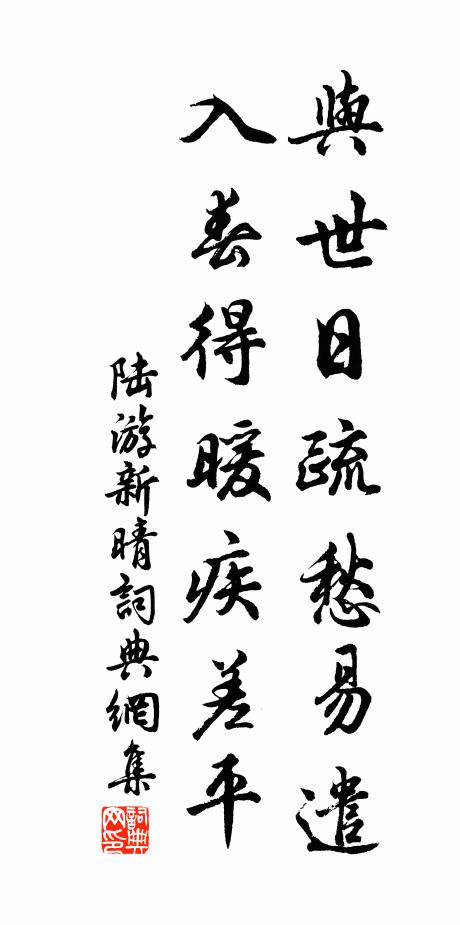 與世日疏愁易遣
入春得暖疾差平
陸游新晴詞典網集
詞典网印